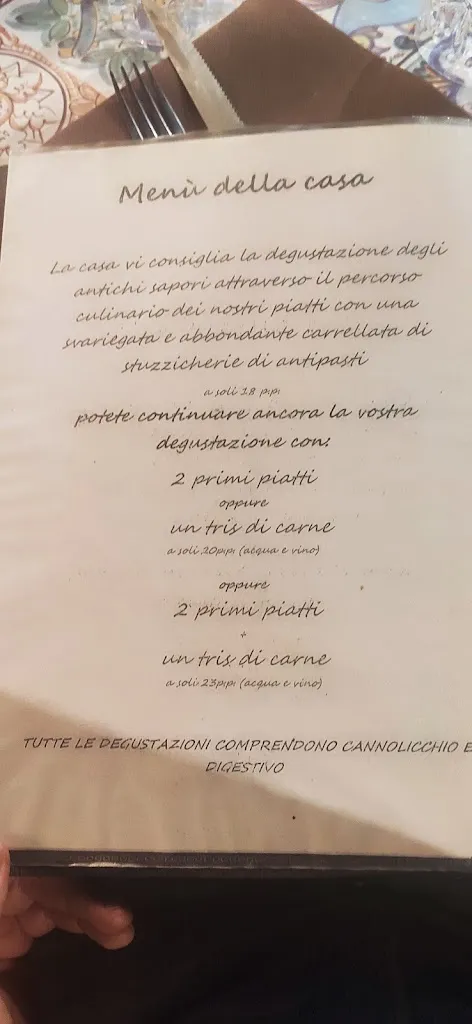 Menù della casa
La casa vi consiglia la degustazione degli
antichi sapori attraverso il percorso
culinario dei nostri piatti con una
svariegata e abbondante carrellata di
stuzzicherie di antipasti
a soli 18 p.p.
potete continuare ancora la vostra
degustazione con:
2 primi piatti
oppure
un tris di carne
a soli 20p.p. (acqua e vino)
oppure
2 primi piatti
+
un tris di carne
a soli 23p.p. (acqua e vino)
TUTTE LE DEGUSTAZIONI COMPRENDONO CANNOLICCHIO E
DIGESTIVO